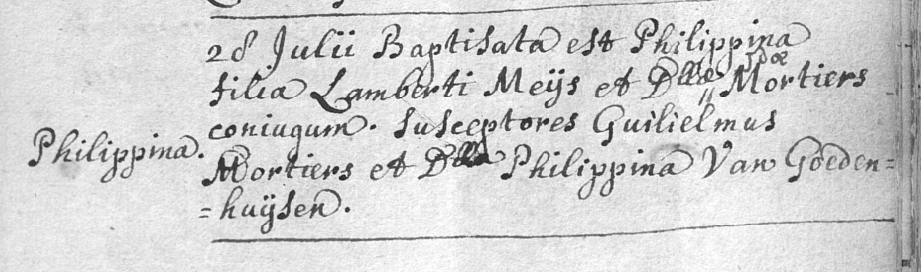 28 Julii Baptisata est Philippina
filia Lamberti Meijs et Dllae Mortiers
Philippina. coniugum. Susceptores Guilielmus
Mortiers et Dlla Philippina Van Goeden=
=huijsen.